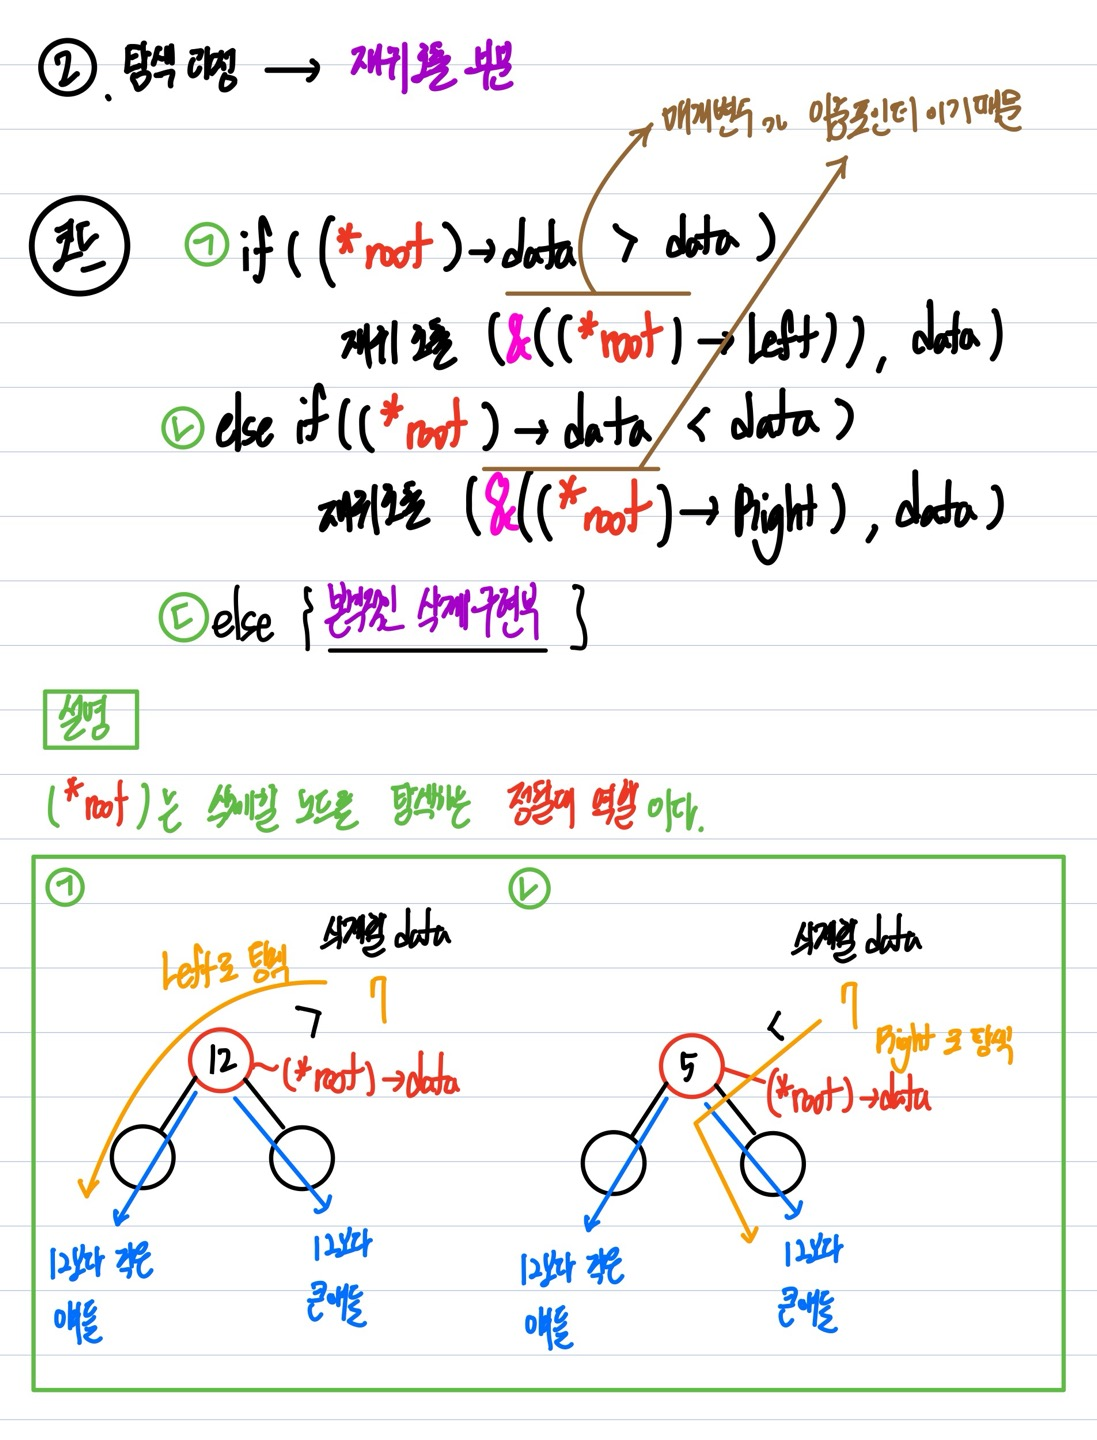 ② . 탐색 과정 → 재귀 호출 부분
매개변수가 이중포인터 이기때문
코드
㉠ if ( (*root)→data > data )
재귀 호출 (&((*root)→Left)), data)
㉡ else if((*root)→data < data )
재귀호출 (&((*root)→Right), data)
㉢ else { 본격적인 삭제구현부 }
설명
(*root)는 삭제할 노드를 탐색하는 정찰대 역할 이다.
㉠
삭제할 data
Left로 탐색
> 7
12
(*root)→data
12보다 작은 애들
12보다 큰애들
㉡
삭제할 data
< 7
Right 로 탐색
5
(*root)→data
12보다 작은 애들
12보다 큰애들